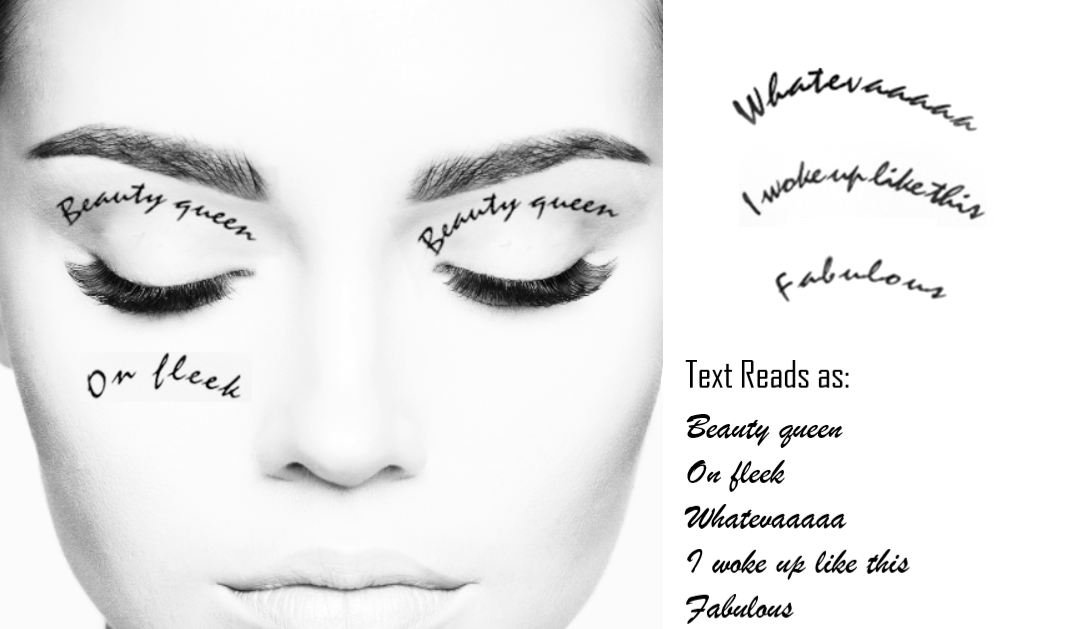 Beauty queen
Beauty queen
On fleek
Whatevaaaaa
I woke up like this
Fabulous
Text Reads as:
Beauty queen
On fleek
Whatevaaaaa
I woke up like this
Fabulous